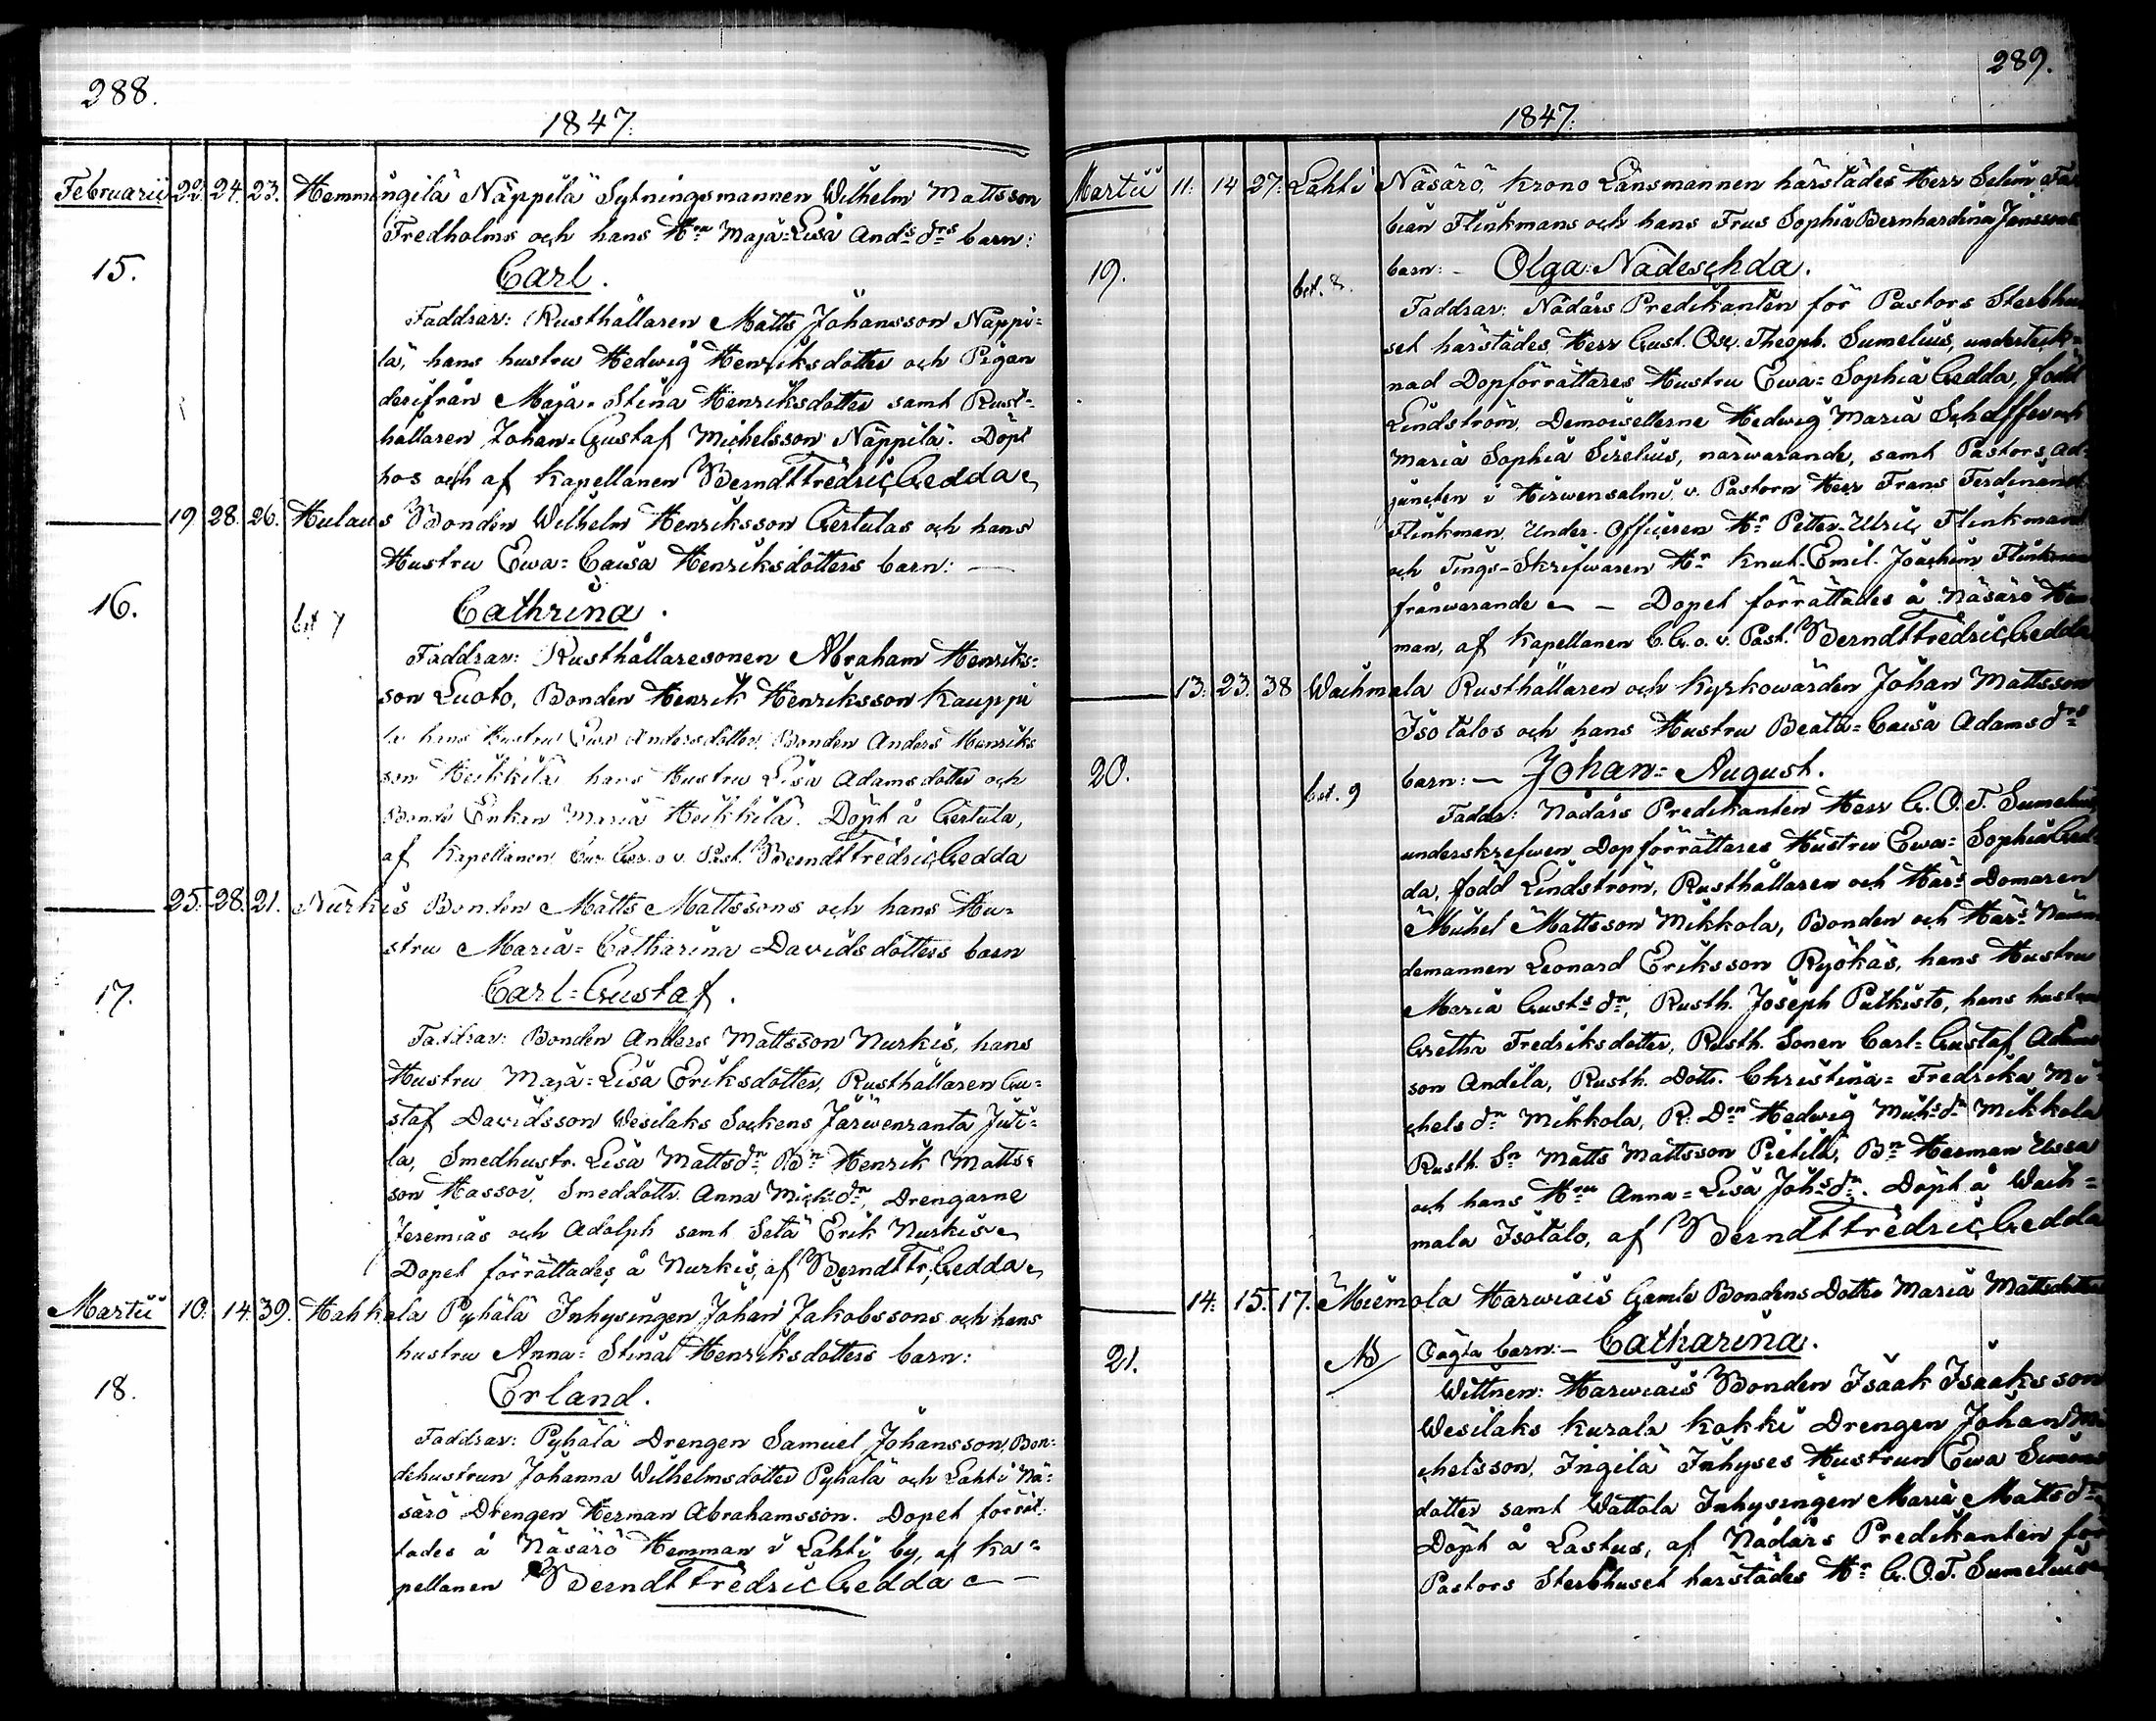 288.
1847.
Februarii 22. 24. 23. Hemmingilä Näppilä Sytningsmannen Wilhelm Mattsson
Fredholms och hans Hru Maja=Lisa Ands drs barn:
15. Carl.
Faddrar: Rusthållaren Matts Johansson Näppi=
lä, hans hustru Hedwig Henriksdotter och Pigan
derifrån Maja=Stina Henriksdotter samt Rust=
hållaren Johan=Gustaf Michelsson Näppilä. Döpt
hos och af Kapellanen Berndt Fredric Gedda
19 28. 26. Hulaus Bonden Wilhelm Henriksson Gertulas och hans
Hustru Ewa=Caisa Henriksdotters barn: —
16. bet 7 Cathrina.
Faddrar: Rusthållaresonen Abraham Henriks=
son Luoto, Bonden Henrik Henriksson Kauppi
la hans Hustru Ewa Andersdotter, Bonden Anders Henriks
son Heikkilä hans Hustru Lisa Adamsdotter och
Bonde Enkan Maria Heikkilä. Döpt å Gertula,
af Kapellanen o. v. Past. Berndt Fredric Gedda
25. 28. 21. Nurkis Bonden Matts Mattssons och hans Hu=
stru Maria=Catharina Davidsdotters barn
17. Carl=Gustaf.
Faddrar: Bonden Anders Mattsson Nurkis, hans
Hustru Maja=Lisa Eriksdotter, Rusthållaren Gu=
staf Davidsson Wesilaks Sockens Järwenranta Juti=
la, Smedhustr. Lisa Mattsdr Bn Henrik Matts=
son Hassoi, Smeddottr. Anna Michsdr, Drengarne
Jeremias och Adolph samt Setä Erik Nurkis
Dopet förrättades å Nurkis, af Berndt Fr. Gedda
Martii 10. 14. 39. Hahkala Pyhälä Inhysingen Johan Jakobssons och hans
hustru Anna=Stina Henriksdotters barn:
18. Erland.
Faddrar: Pyhälä Drengen Samuel Johansson, Bon=
dehustrun Johanna Wilhelmsdotter Pyhälä och Lahti Nä=
särö Drengen Herman Abrahamsson. Dopet förrät=
tades å Näsärö Hemman i Lahti by, af Ka=
pellanen Berndt Fredric Gedda
289.
1847.
Martii 11. 14 27. Lahti Näsärö, Krono Länsmannen härstädes Herr Selim Fa
bian Flinkmans och hans Frus Sophia Bernhardina Janssons
19. bet. 8. barn: — Olga Nadeschda.
Faddrar: Nådårs Predikanten för Pastors Sterbhu
set härstädes Herr Gust. Osc. Theoph. Sumelius, underteck=
nad Dopförrättares Hustru Ewa=Sophia Gedda, född
Lindström, Demoisellerne Hedwig Maria Schaffer och
Maria Sophia Sirelius, närwarande, samt Pastors ad=
juncten i Hirwensalmi v. Pastorn Herr Frans Ferdinand
Flinkman, Under-Officeren Hr Petter-Ulric Flinkman
och Tings-Skrifwaren Hr Knut-Emil-Joachim Flinkman
frånwarande — Dopet förrättades å Näsärö Hem
man, af Kapellanen C.G. o. v. Past. Berndt Fredric Gedda
13. 23. 38 Waihmala Rusthållaren och Kyrkowärden Johan Mattsson
Isotalos och hans Hustru Beata=Caisa Adams drs
20. bet. 9 barn: — Johan=August.
Faddr: Nådårs Predikanten Herr G. O. T. Sumelius
underskrefwen Dopförrättares Hustru Ewa=Sophia Ged
da, född Lindström, Rusthållaren och Härs Domaren
Michel Mattsson Mikkola, Bonden och Härs Näm
demannen Leonard Eriksson Ryökäs, hans Hustru
Maria Gusts dr, Rusth. Joseph Pulkisto, hans hustru
Gretha Fredriksdotter, Rusth. Sonen Carl=Gustaf Adams
son Andila, Rusth. Dottr. Christina=Fredrika Mi=
chels dr Mikkola, R. Dr Hedwig Mich:s dr Mikkola
Rusth. Sn Matts Mattsson Pietilä, Bn Herman Ussa
och hans Hru Anna=Lisa Johs dr. Döpt å Waih=
mala Isotalo, af Berndt Fredric Gedda
14. 15. 17. Miemola Harwiais Gamle Bondens Dotter Maria Mattsdotters
21. Oägta barn: — Catharina.
Wittnen: Harwiais Bonden Isaak Isaaksson
Wesilaks Kurala Kakki Drengen Johan Mi
chelsson, Ingilä Inhyses Hustrun Ewa Simons
dotter samt Wattola Inhysingen Maria Mattsdr
Döpt å Lastus, af Nådårs Predikanten för
Pastors Sterbhuset härstädes Hr G. O. T. Sumelius